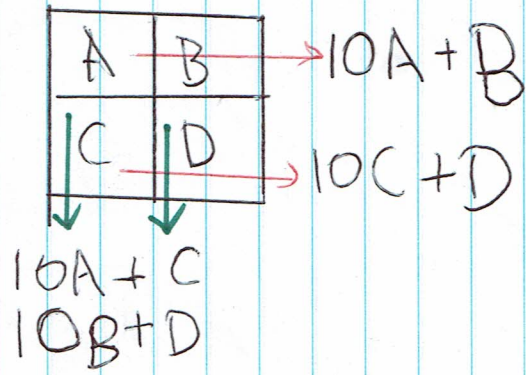 A B 10A + B
C D 10C + D
10A + C
10B + D